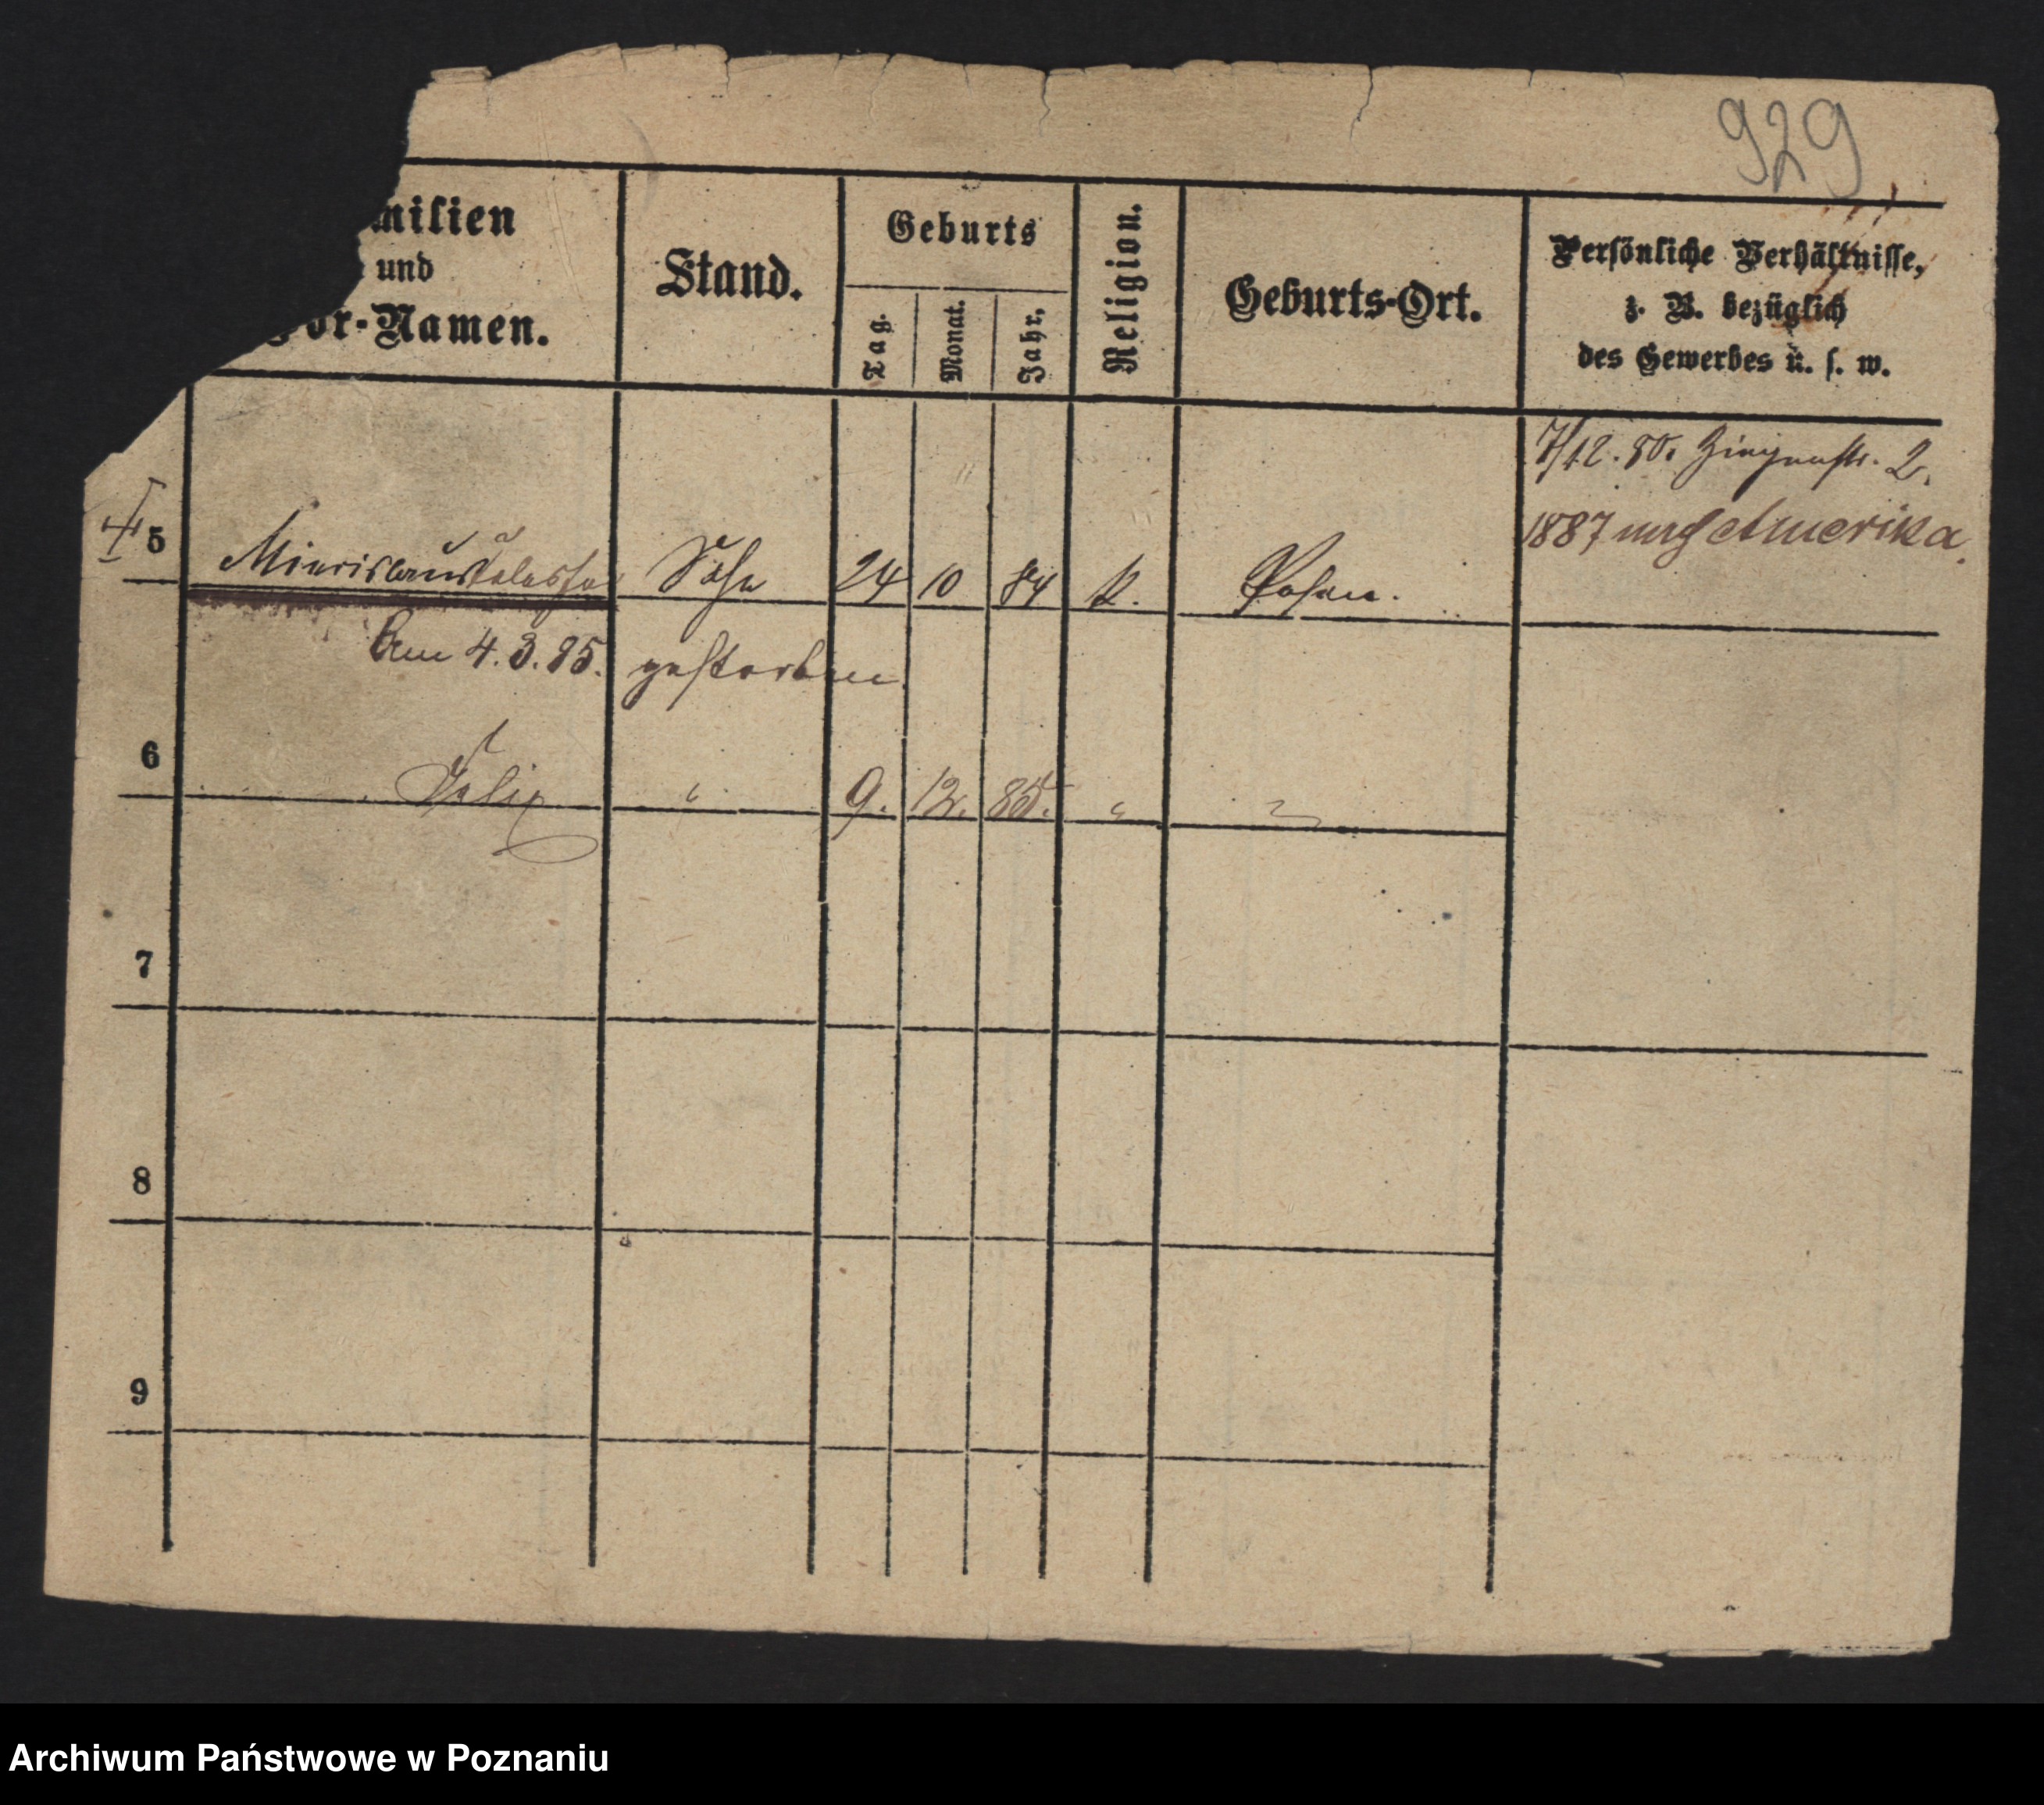 929
milien
und
or-Namen.
Stand.
Geburts
Tag.
Monat.
Jahr.
Religion.
Geburts-Ort.
Persönliche Verhältnisse,
z. B. bezüglich
des Gewerbes u. s. w.
7/12. 80. 2.
1887 nach Amerika.
5
Sohn 24 10 84 k. Posen.
Am 4. 3. 85. gestorben.
6
Felix " 9. 12. 85. "
7
8
9
Archiwum Państwowe w Poznaniu